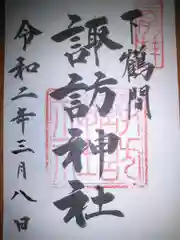 下鶴間
諏訪神社
令和二年三月八日